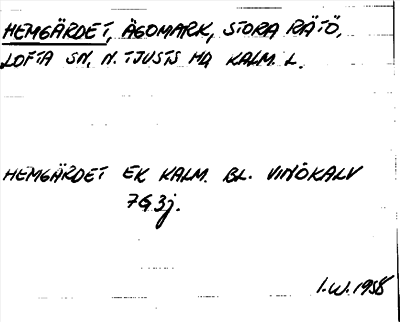 HEMGÄRDET, ÄGOMARK, STORA RÄTÖ,
LOFTA SN, N. TJUSTS HD KALM. L.
HEMGÄRDET EK KALM. BL. VINÖKALV
7G 3j.
I.W. 1958